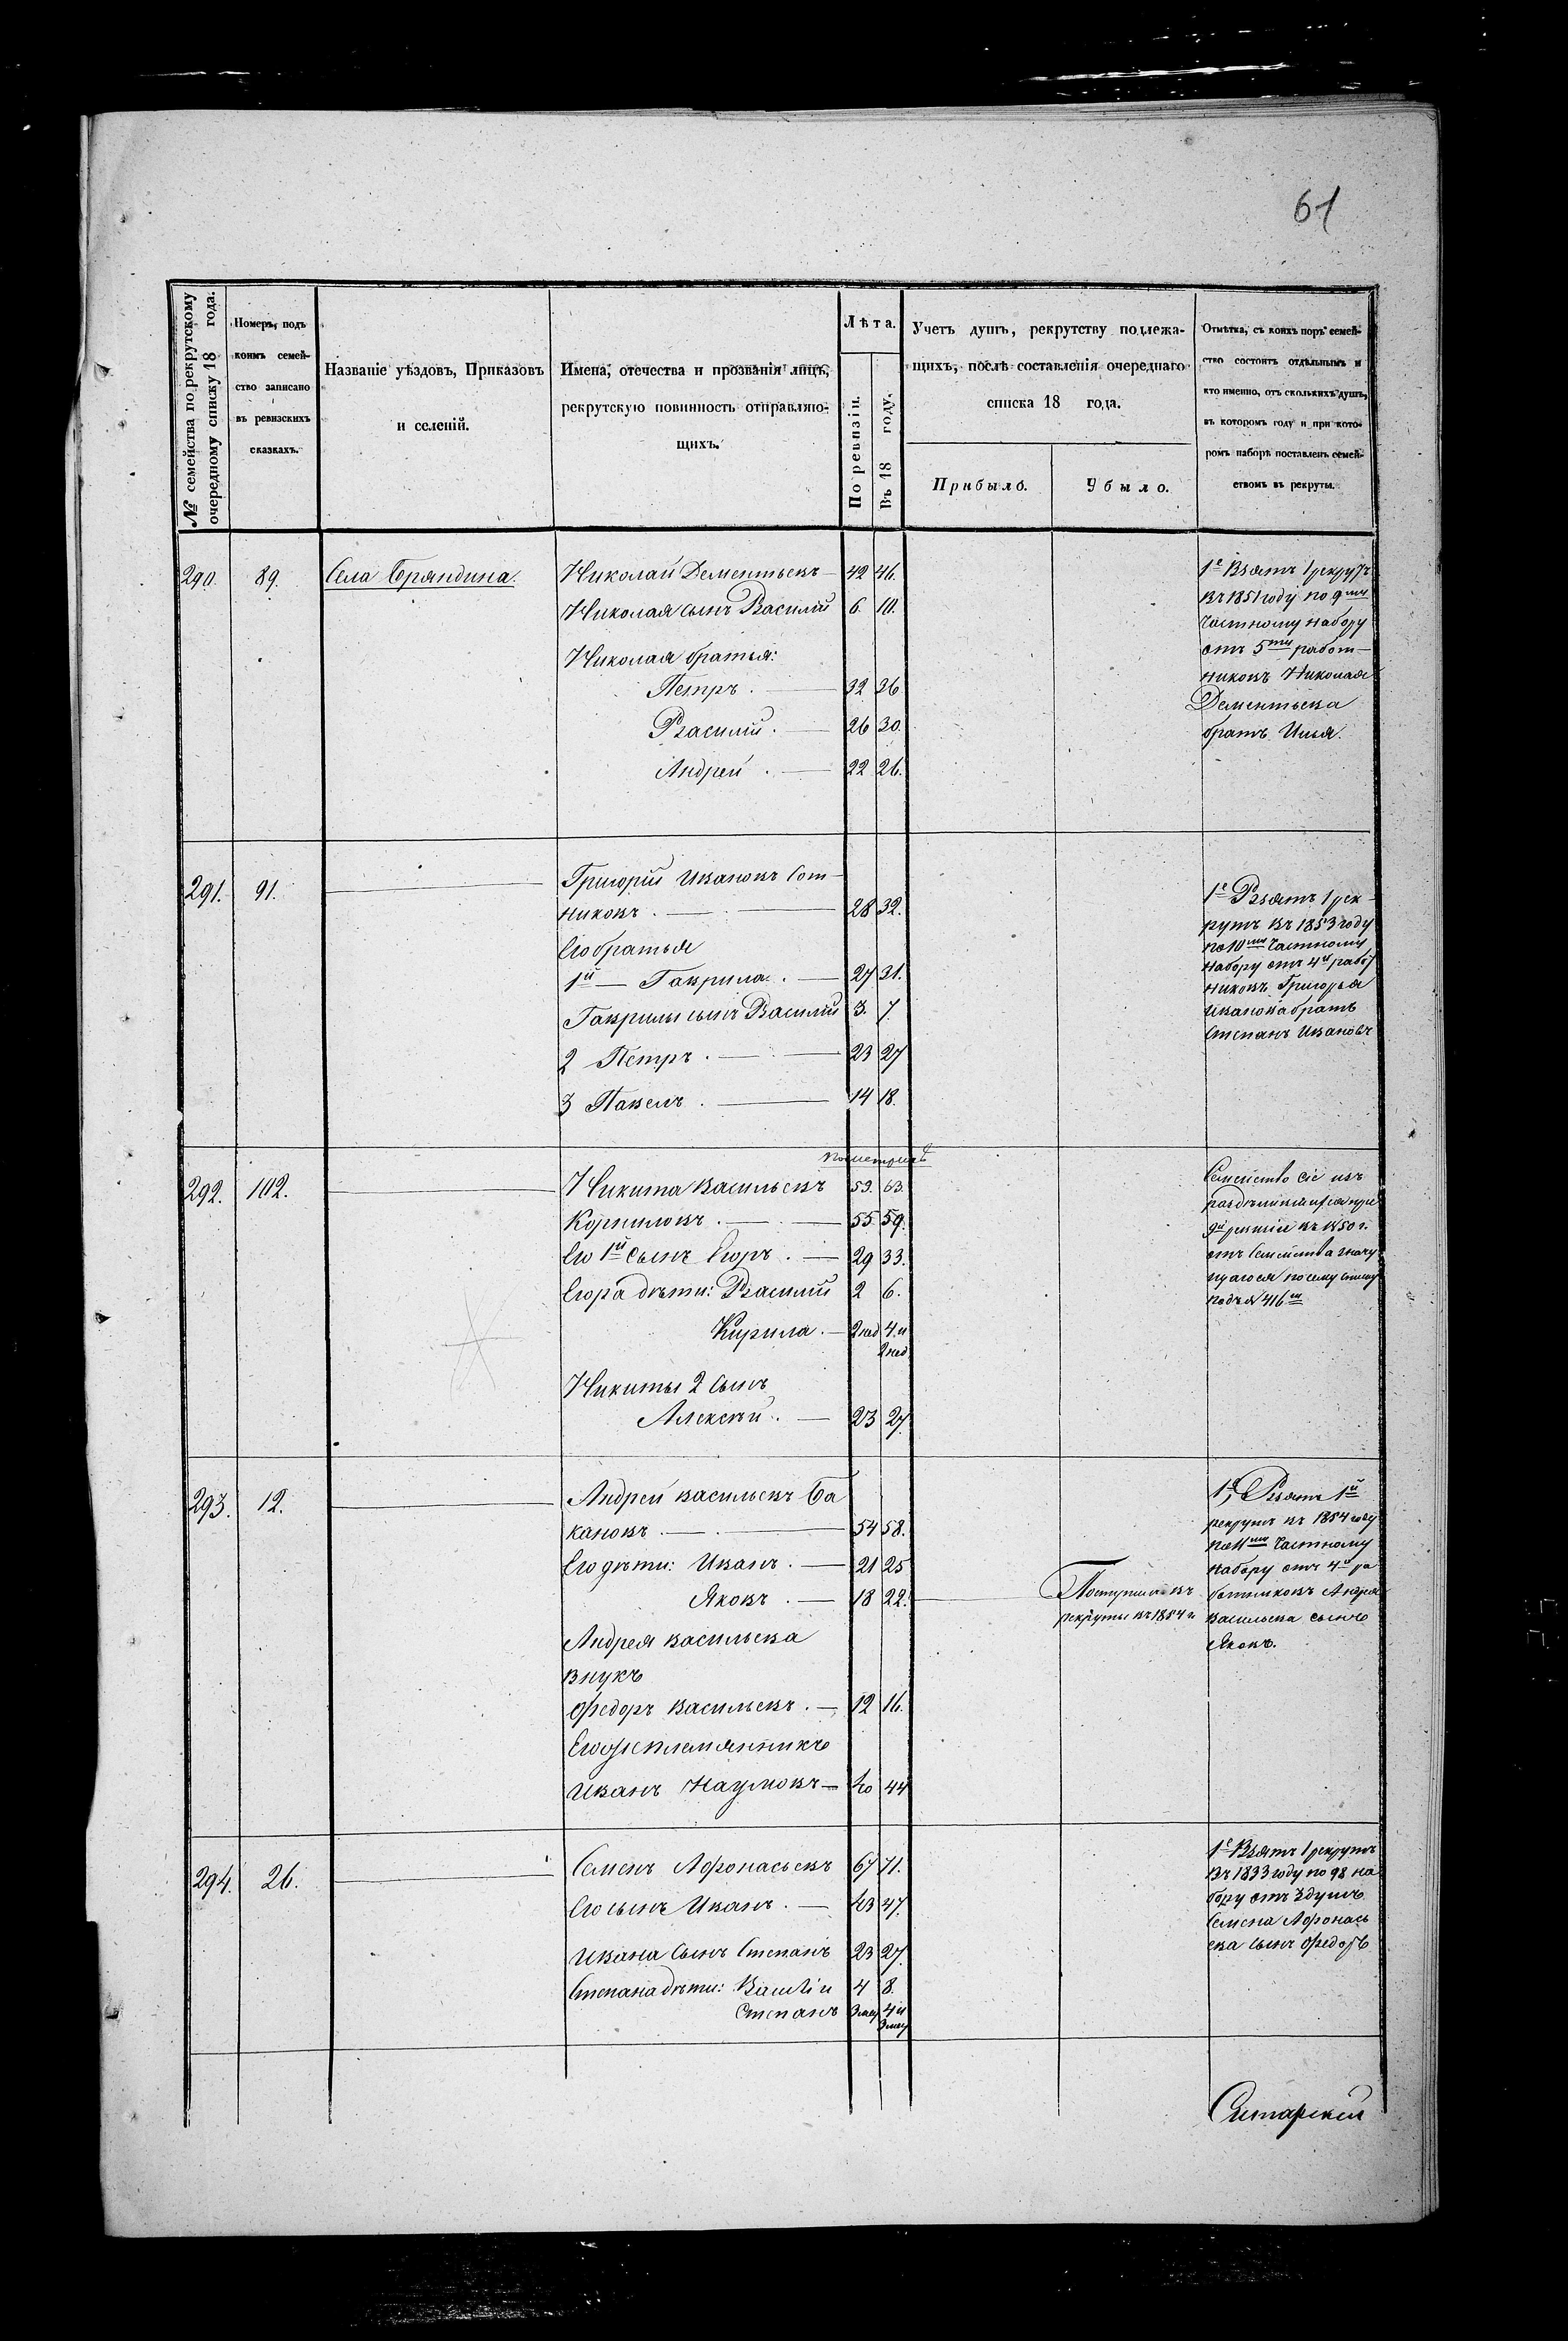 61
№ семейства по рекрутскому
очередному списку 18 года.
Номеръ, подъ
коимъ семей-
ство записано
въ ревизскихъ
сказкахъ.
Названіе уѣздовъ, Приказовъ
и селеній.
Имена, отечества и прозванія лицъ,
рекрутскую повинность отправляю-
щихъ.
Лѣта.
По ревизіи.
Въ 18 году.
Учетъ душъ, рекрутству подлежа-
щихъ, послѣ составленія очереднаго
списка 18 года.
Прибыло.
Убыло.
Отмѣтка, съ коихъ поръ семей-
ство состоитъ отдѣльнымъ и
кто именно, отъ сколькихъ душъ,
въ которомъ году и при кото-
ромъ наборѣ поставленъ семей-
ствомъ въ рекруты.
290. 89. Села Бряндина. Николай Дементьевъ 42 46.
Николая сынъ Василій 6. 10.
Николая братья:
Петръ. 32 36
Василій. 26 30.
Андрей. 22 26.
1е Взятъ 1 рекрутъ
въ 1851 году по 9му
частному набору
отъ 5ти работ-
никовъ Николая
Дементьева
братъ Илья.
291. 91. Григорій Ивановъ Сот-
никовъ. 28 32.
Его братья
1й Гаврила. 27 31.
Гаврилы сынъ Василій 3. 7.
2 Петръ. 23 27
3 Павелъ. 14 18.
1е Взятъ 1 рек-
рутъ въ 1853 году
по 10му частному
набору отъ 4х работ
никовъ Григорья
Иванова братъ
Степанъ Ивановъ
292. 102. Никита Васильевъ 59. 63.
Корниловъ. 55 59.
Его 1й сынъ Егоръ. 29 33.
Егора дѣти: Василій 2 6.
Кирила. 2 нед 4. и
2 нед
Никиты 2 сынъ
Алексѣй. 23 27.
Семейство сіе изъ
раздѣлившихся при
9й ревизіи въ 1850 г.
отъ семейства значу
щагося по сему списку
подъ № 416м
293. 12. Андрей Васильевъ Ба
кановъ. 54 58.
Его дѣти: Иванъ. 21 25
Яковъ. 18 22.
Андрея Васильева
внукъ
Федоръ Васильевъ. 12 16.
Его же племянникъ
Иванъ Наумовъ 40 44
Поступилъ въ
рекруты въ 1854 г.
1е, Взятъ 1й
рекрутъ въ 1854 году
по 11му частному
набору отъ 4х ра
ботниковъ Андрея
Васильева сынъ
Яковъ.
294. 26. Семенъ Афонасьевъ 67 71.
Его сынъ Иванъ. 43 47.
Ивана сынъ Степанъ 23 27.
Степана дѣти: Василій 4 8.
Степанъ 3 мец 4 и
3 мец
1е Взятъ 1 рекрутъ
въ 1833 году по 98 на
бору отъ 3 душъ
Семена Афонась
ева сынъ Федоръ